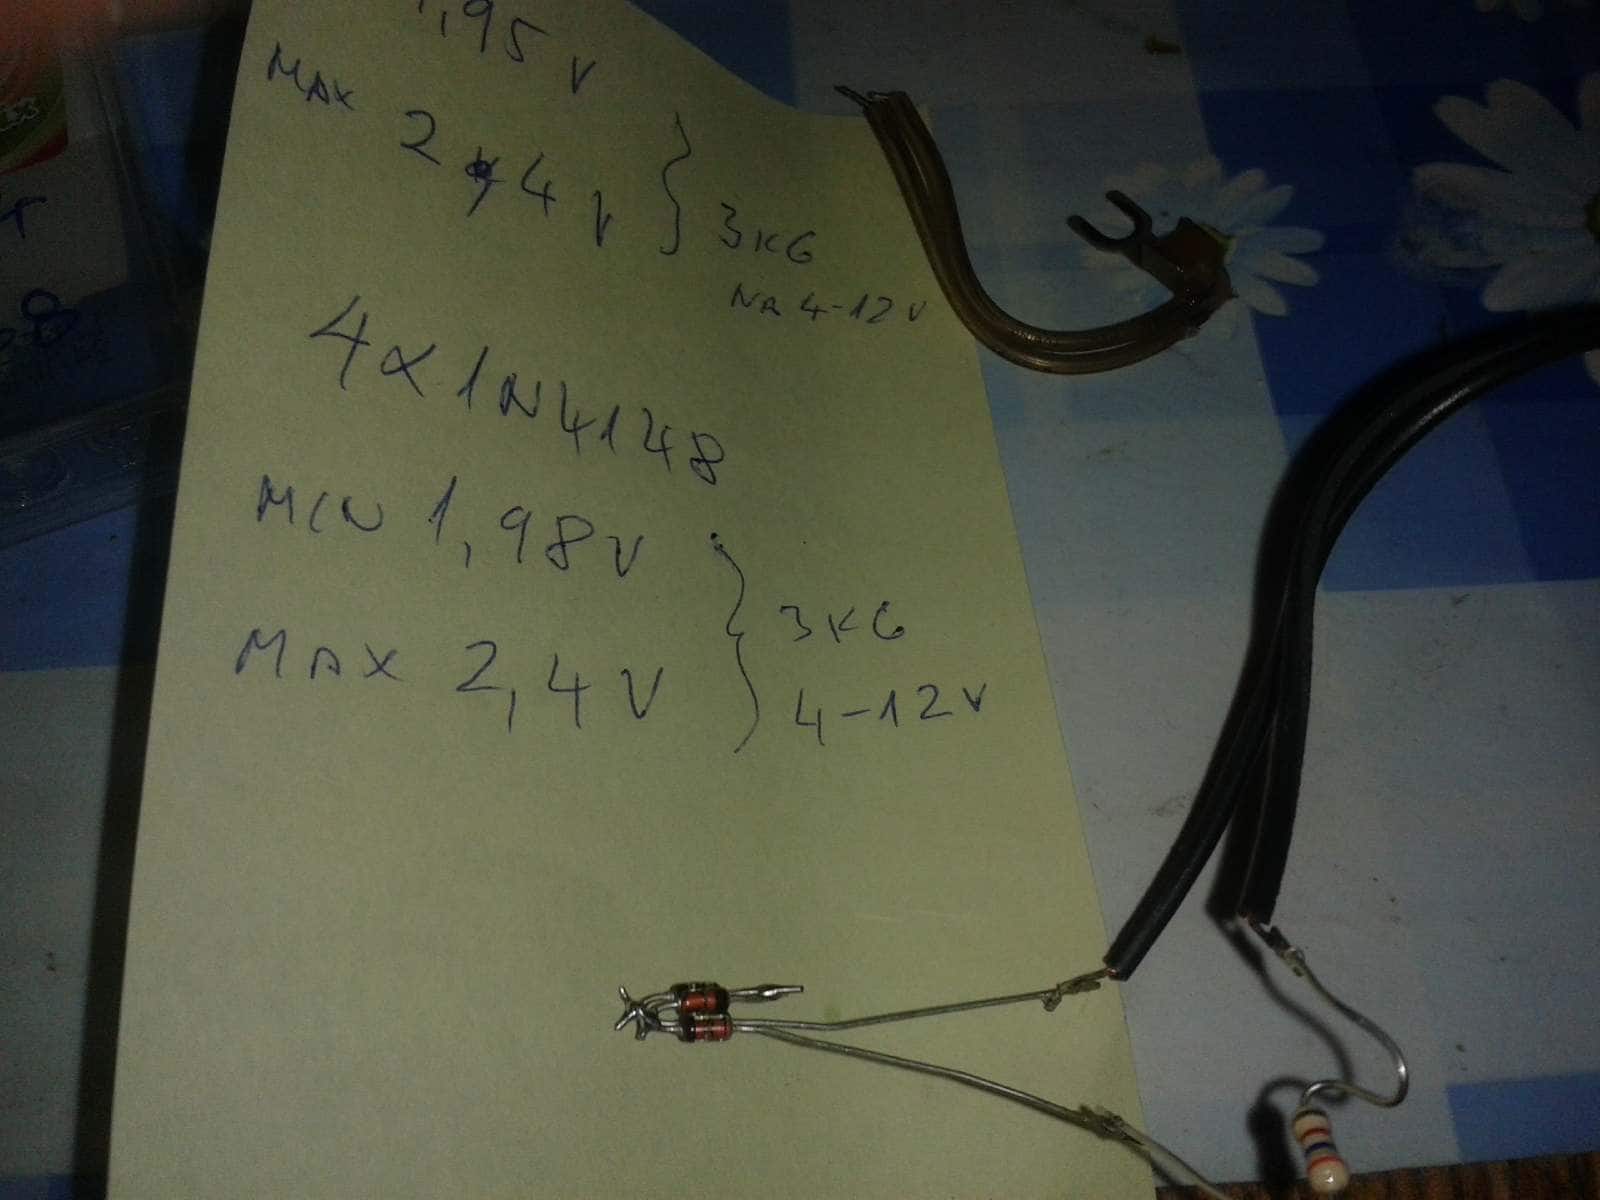 1,95 V
MAX 2,4 V
3K6
NA 4-12 V
4x 1N4148
MIN 1,98V
MAX 2,4 V
3K6
4-12V